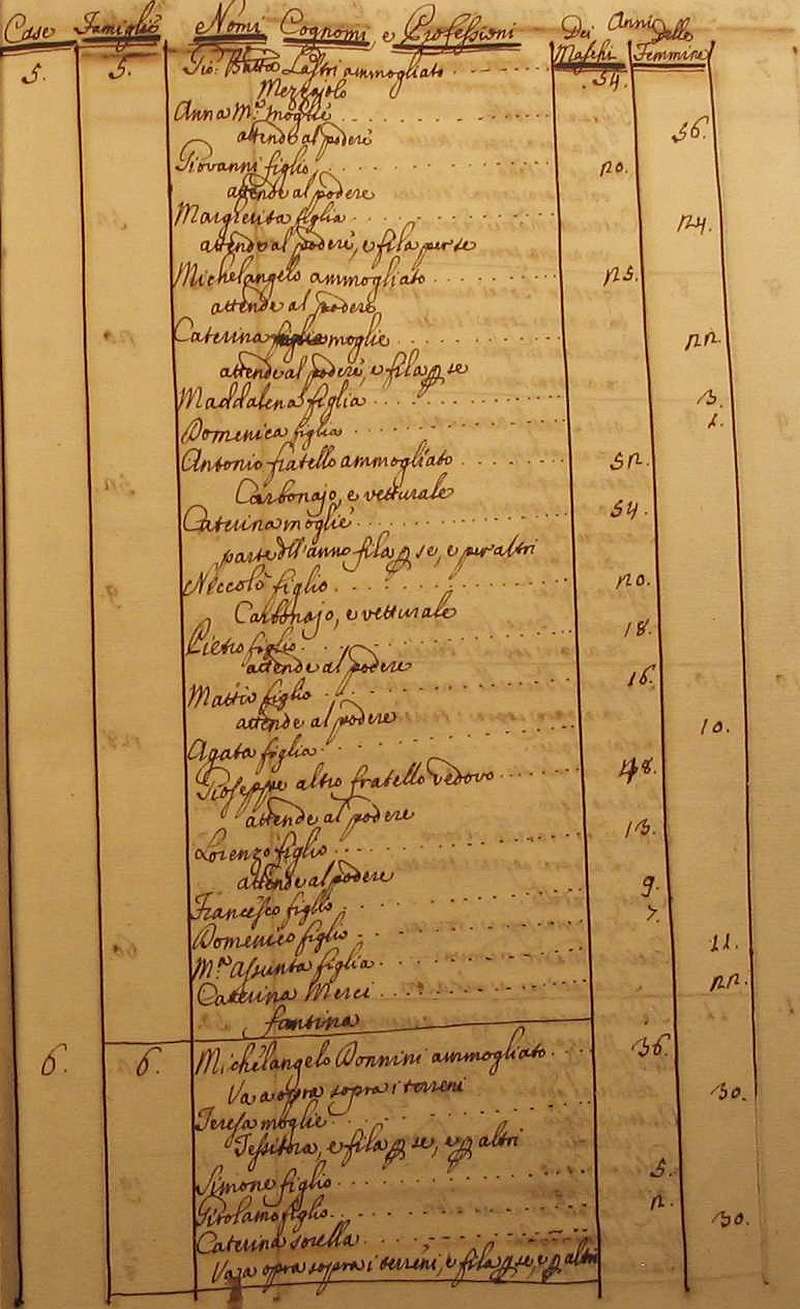 Case Famiglie Nomi Cognomi, e Professioni Dei Maschi Anni Delle Femmine
5. 5. Gio: Batta Lastri ammogliato 54.
Mezzajolo
Anna M.ª moglie 56.
attende al podere
Giovanni figlio 20.
attende al podere
Margherita figlia 24.
attende al podere, e fila per se
Michelangelo ammogliato 25.
attende al podere
Caterina figlia moglie 22.
attende al podere, e fila p se
Maddalena figlia 3.
Domenica figlia 1.
Antonio fratello ammogliato 52.
Carbonajo, e vetturale
Caterina moglie 54.
parte dell'anno fila p se, e per altri
Niccolò figlio 20.
Carbonajo, e vetturale
Pietro figlio 18.
attende al podere
Mattio figlio 16.
attende al podere
Agata figlia 10.
Gioseppe altro fratello vedovo 48.
attende al podere
Lorenzo figlio 13.
attende al podere
Francesco figlio 9.
Domenico figlio 7.
M.ª Assunta figlia 11.
Caterina Merci 22.
fantina
6. 6. Michelangelo Donnini ammogliato 36.
Va a opra sopra i terreni
Teresa moglie 30.
Tessitora, e fila p se, e p altri
Simone figlio 5.
Girolamo figlio 2.
Caterina sorella 30.
Va a opra sopra i terreni, e fila p se, e p altri